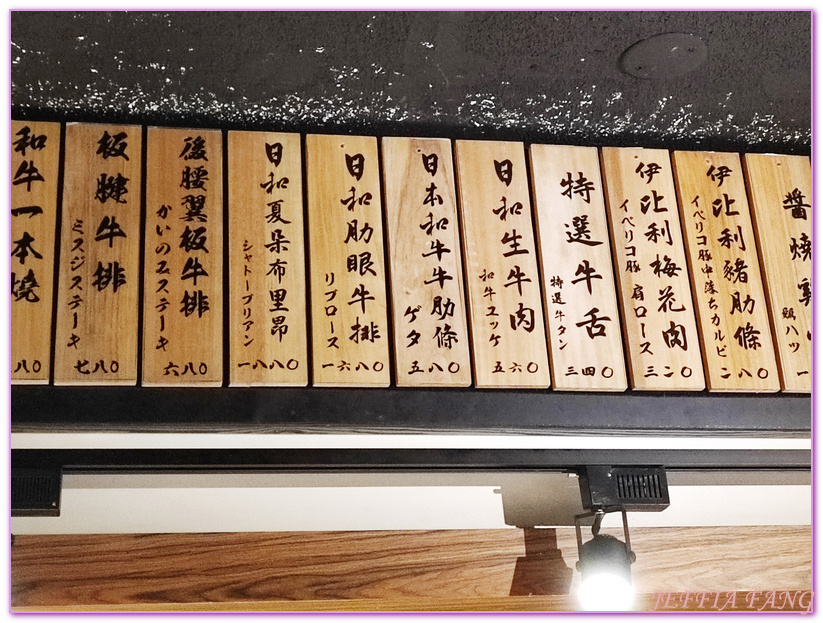 和牛一本燒
八〇
板腱牛排
ミスジステーキ
七八〇
後腰翼板牛排
かいのみステーキ
六八〇
日和夏朵布里昂
シャトーブリアン
一八八〇
日和肋眼牛排
リブロース
一六八〇
日本和牛牛肋條
ゲタ
五八〇
日和生牛肉
和牛ユッケ
五六〇
特選牛舌
特選牛タン
三四〇
伊比利梅花肉
イベリコ豚 肩ロース
三二〇
伊比利豬肋條
イベリコ豚中落ちカルビ
二八〇
醬燒雞
ハツ
一
JEFFIA FANG